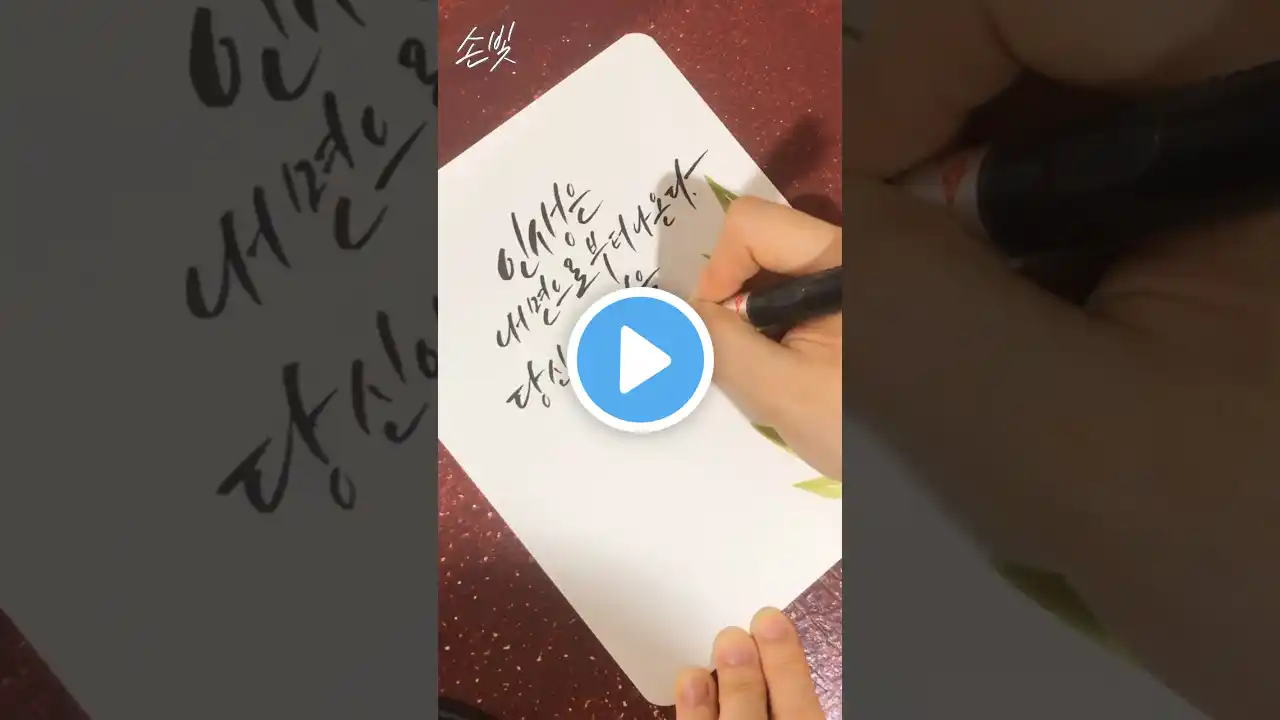 손빛
인생은
내면으로부터 나온다.
당신